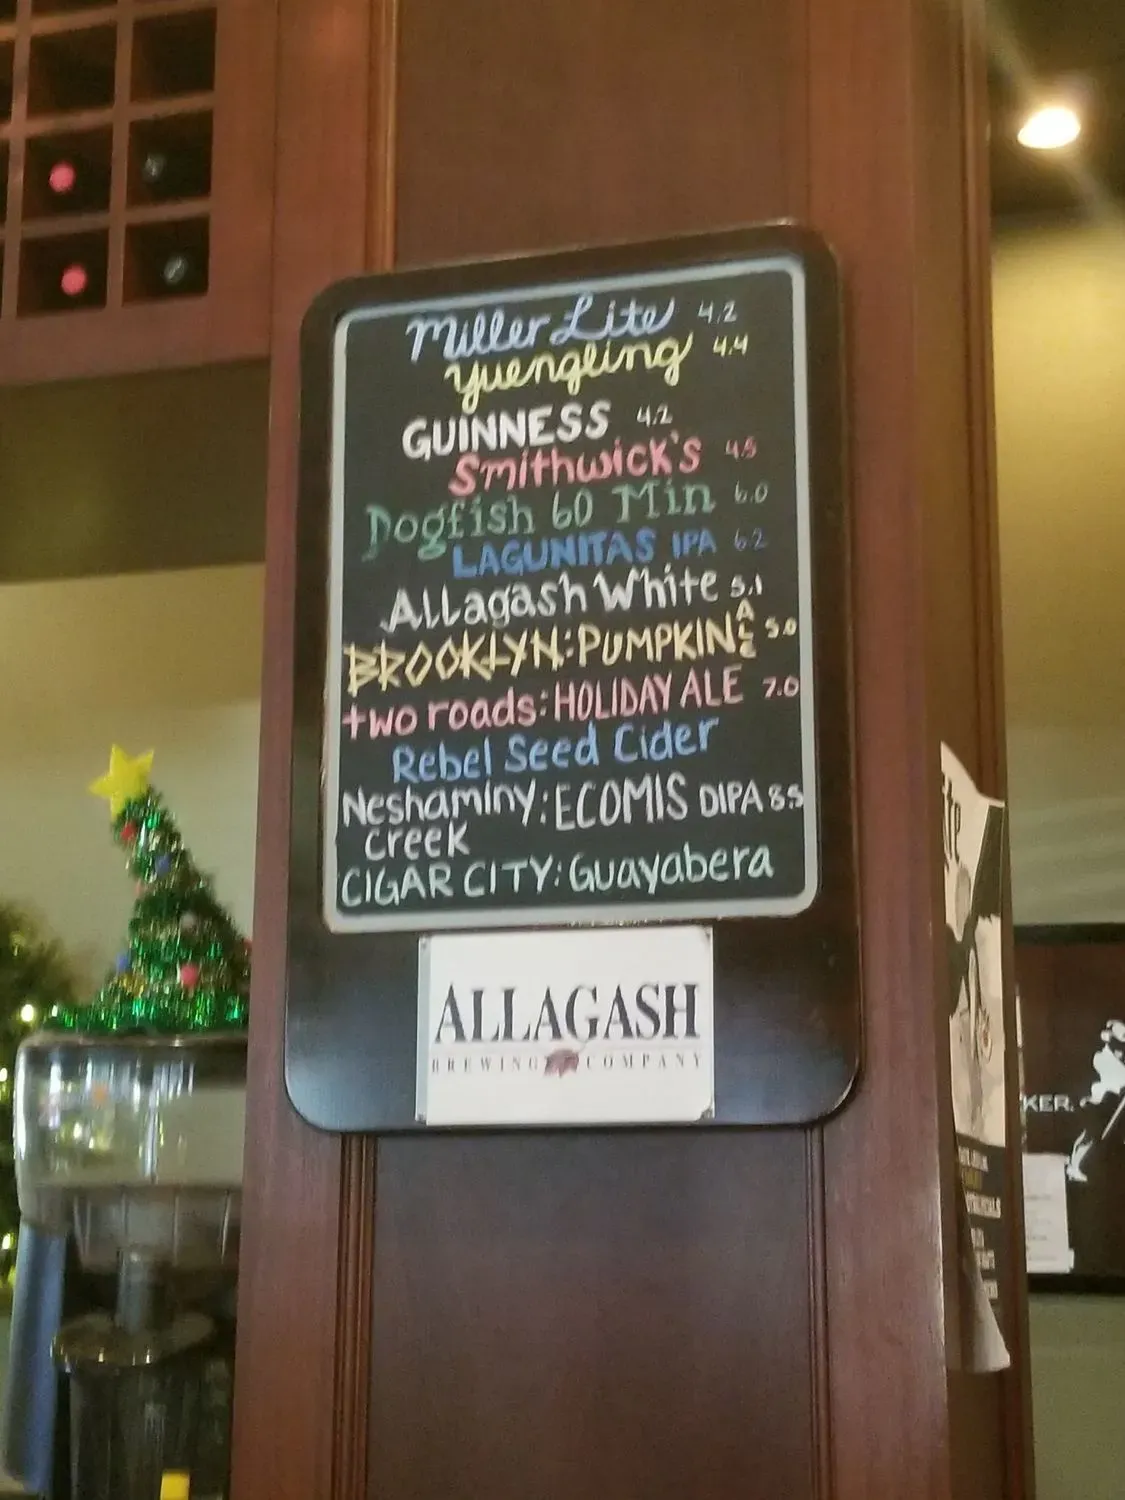 Miller Lite 4.2
Yuengling 4.4
GUINNESS 4.2
Smithwick's 4.5
Dogfish 60 Min 6.0
LAGUNITAS IPA 6.2
Allagash White 5.1
BROOKLYN: PUMPKIN ALE 5.0
two roads: HOLIDAY ALE 7.0
Rebel Seed Cider
Neshaminy: ECOMIS DIPA 8.5
Creek
CIGAR CITY: Guayabera
ALLAGASH
BREWING COMPANY
KER.